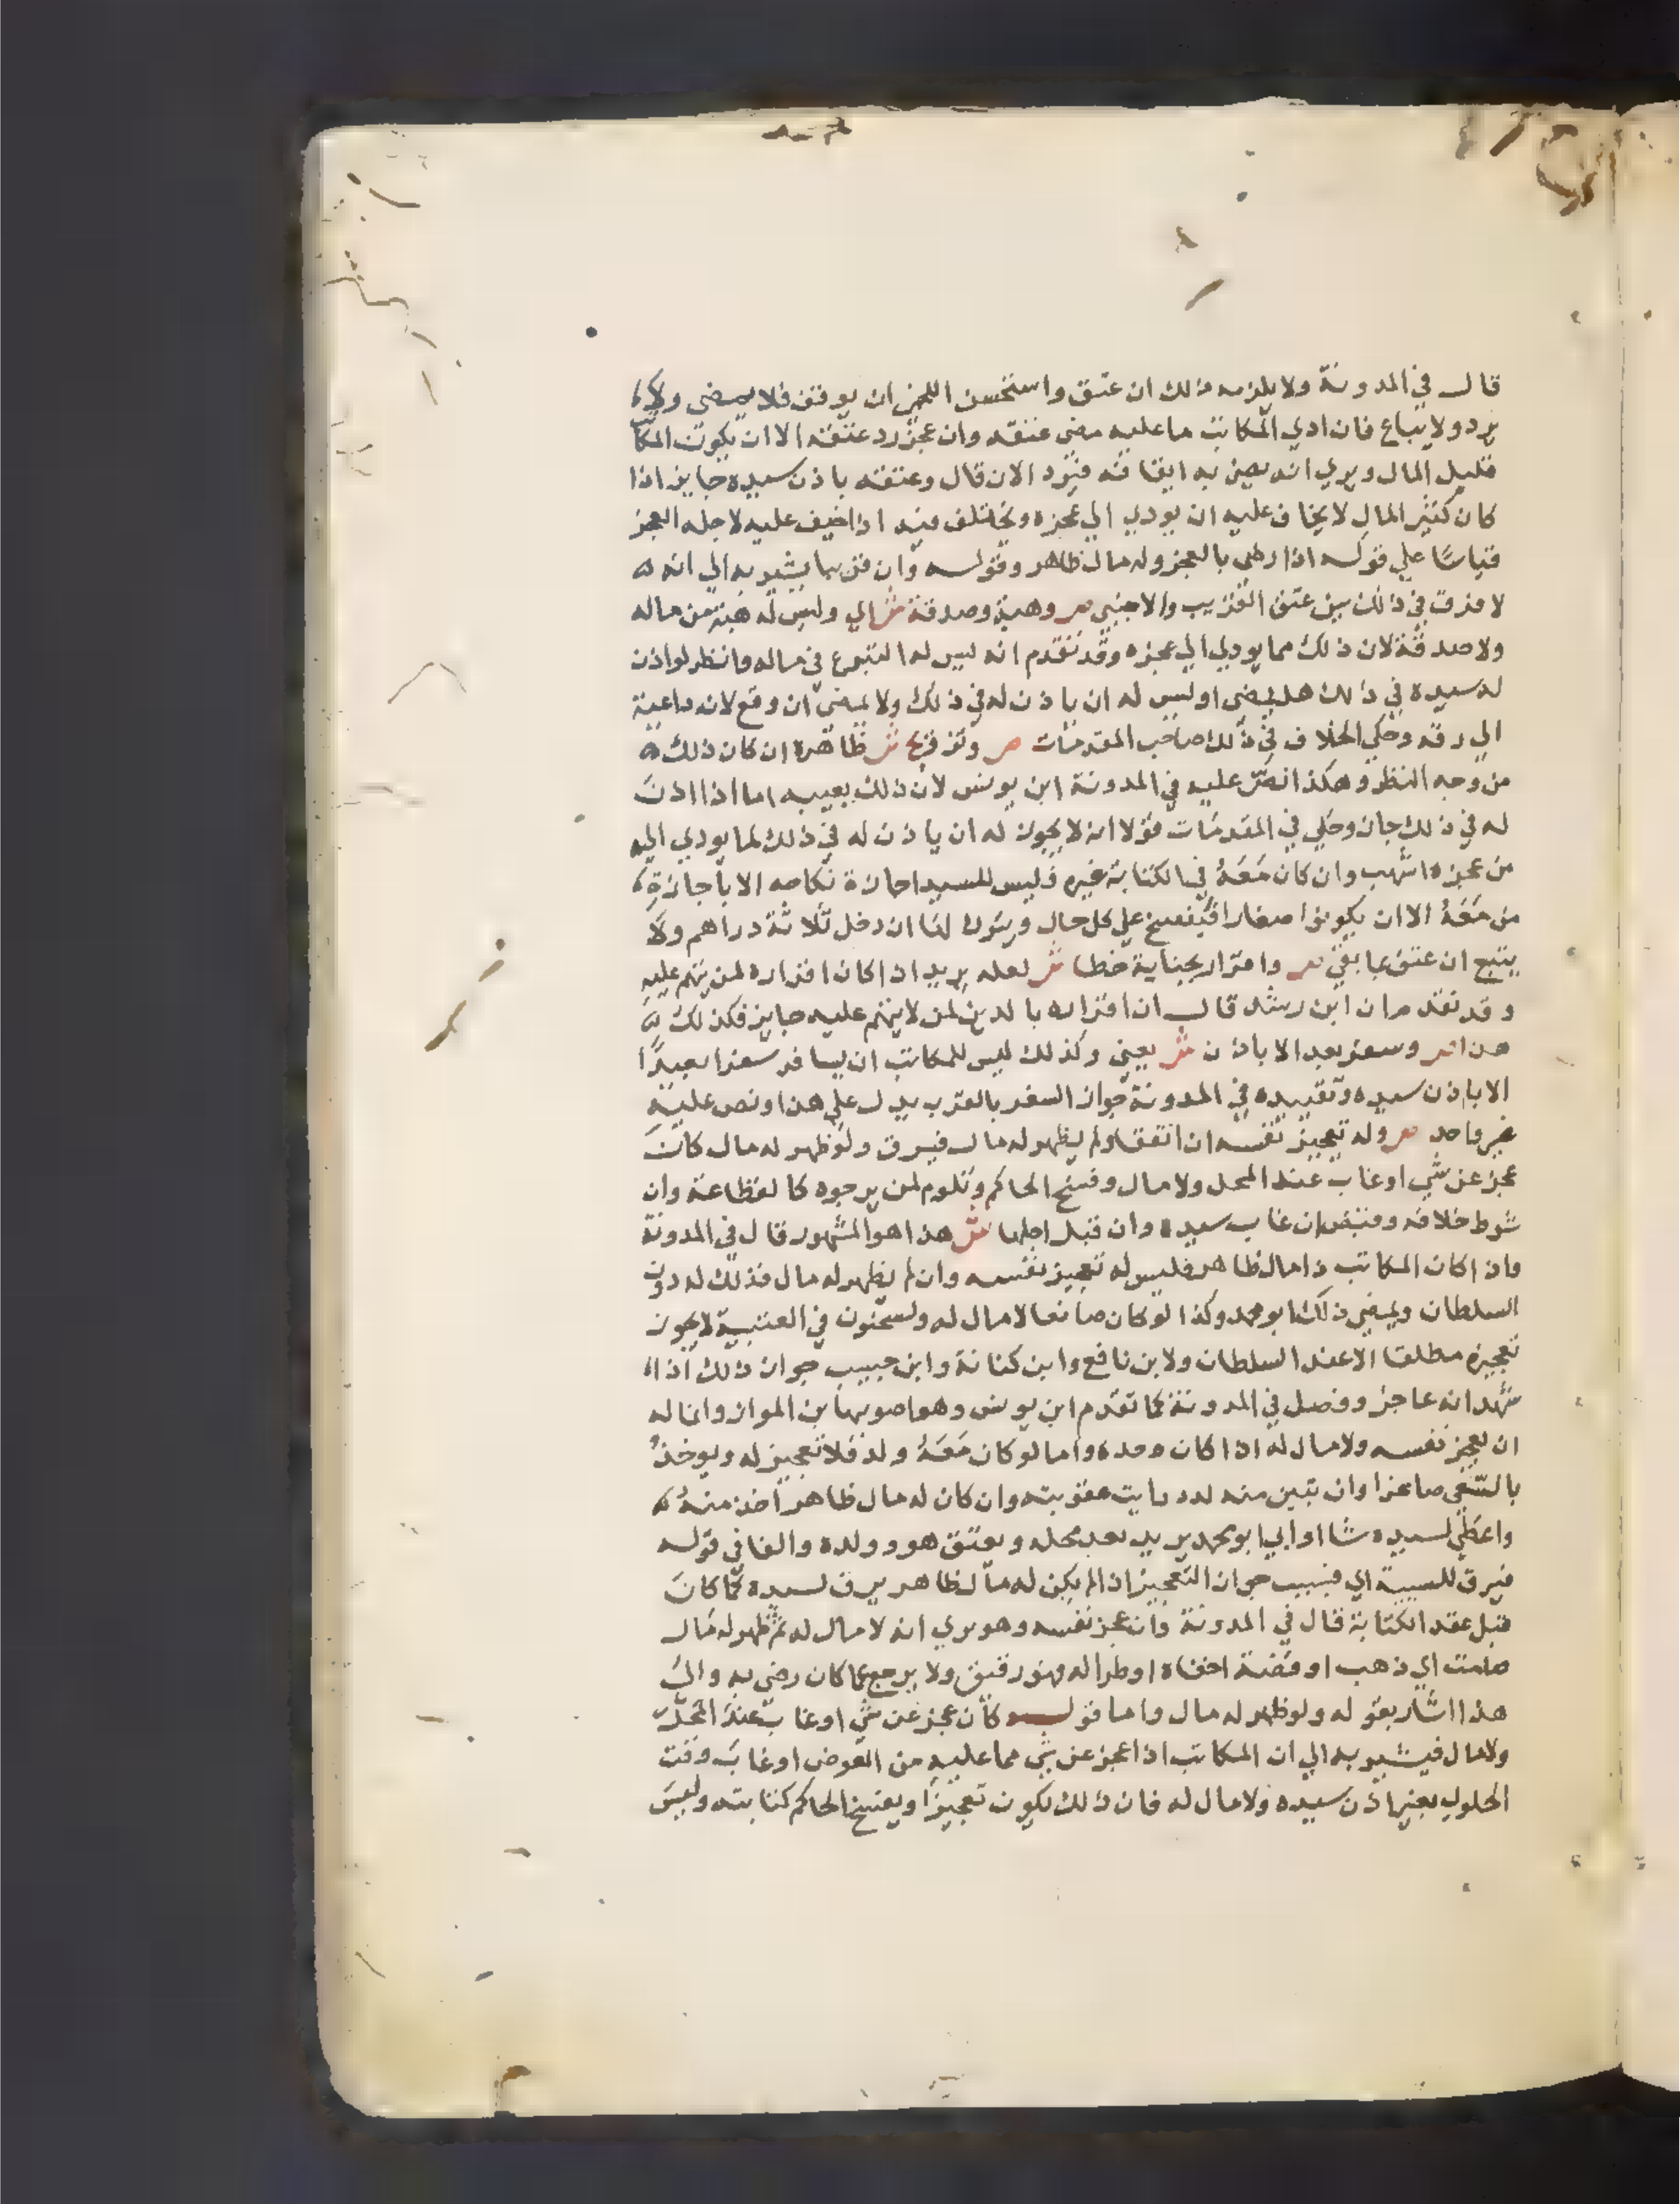 قال في المدونة ولا يلزمه ذلك ان عتق واستحسن اللخمي ان يوقف فلا يمضي ولا
يرد ولا يباع فان ادي المكاتب ما عليه مضي عتقه وان عجز رد عتقه الا ان يكون المكاتب
قليل المال ويري انه يضر به ايقافه فيرد الان قال وعتقه باذن سيده جايز اذا
كان كثير المال لا يخاف عليه ان يودي الي عجزه ويختلف فيه اذا خيف عليه لاجله العجز
قياسًا علي قوله اذا رضي بالعجز وله مال ظاهر وقوله وان قريبا يشير به الي انه
لا فرق في ذلك بين عتق القريب والاجنبي ص وهبة وصدقة ش اي وليس له هبة من ماله
ولا صدقة لان ذلك مما يودي الي عجزه وقد تقدم انه ليس له التبرع في ماله وانظر لو اذن
له سيده في ذلك هل يمضي او ليس له ان ياذن له في ذلك ولا يمضي ان وقع لانه داعية
الي رقه وحكي الخلاف في ذلك صاحب المقدمات ص وتزويج ش ظاهره ان كان ذلك
من وجه النظر وهكذا نص عليه في المدونة ابن يونس لان ذلك يعيبه اما اذا اذن
له في ذلك جاز وحكي في المقدمات قولا انه لا يجوز له ان ياذن له في ذلك لما يودي اليه
من عجزه اشهب وان كان مَعَهُ في الكتابة غيره فليس للسيد اجازة نكاحه الا باجازة
من مَعَهُ الا ان يكونوا صغارا فيفسخ علي كل حال ويترك لها ان دخل ثلاثة دراهم ولا
يتبع ان عتق بما بقي ص واقرار بجناية خطا ش لعله يريد اذا كان اقراره لمن يتهم عليه
وقد تقدم ان ابن رشد قال ان اقراره بالدين لمن لا يتهم عليه جايز فكذلك في
هذا ص وسفر بعد الا باذن ش يعني وكذلك ليس للمكاتب ان يسافر سفرا بعيدًا
الا باذن سيده وتقييده في المدونة جواز السفر بالقرب يدل علي هذا ونص عليه
غير واحد ص وله تعجيز نفسه ان اتفقا ولم يظهر له مال فيرق ولو ظهر له مال كان
عجز عن شي او غاب عند المحل ولا مال وفسخ الحاكم وتلوم لمن يرجوه كالقطاعة وان
شرط خلافه وقبض ان غاب سيده وان قبل اجلها ش هذا هو المشهور قال في المدونة
واذا كان المكاتب ذا مال ظاهر فليس له تعجيز نفسه وان لم يظهر له مال فذلك له دون
السلطان ويمضي ذلك ابو محمد وكذا لو كان صانعا لا مال له ولسحنون في العتبية لا يجوز
تعجيزه مطلقا الا عند السلطان ولابن نافع وابن كنانة وابن حبيب جواز ذلك اذا
شهد انه عاجز وفصل في المدونة كما تقدم ابن يونس وهو اصوبها ابن المواز وانما له
ان يعجز نفسه ولا مال له اذا كان وحده واما لو كان مَعَهُ ولد فلا تعجيز له ويوخذ
بالسّعي صاغرا وان تبين منه لدد رايت عقوبته وان كان له مال ظاهر اخذ منهُ
واعطي لسيده شا او ابي ابو محمد يريد بعد محله ويعتق هو وولده والفا في قوله
فيرق للسببية اي فبسبب جواز التعجيز اذا لم يكن له مال ظاهر يرق لسيده كما كان
قبل عقد الكتابة قال في المدونة وان عجز نفسه وهو يري انه لا مال له ثم ظهر له مال
صامت اي ذهب او فضة اخفاه او طرا له فهو رقيق ولا يرجع عما كان رضي به والي
هذا اشار بقوله ولو ظهر له مال واما قوله كان عجز عن شي او غاب عند المحل
ولا مال فيشير به الي ان المكاتب اذا عجز عن شي مما عليه من العوض او غاب وقت
الحلول بغير اذن سيده ولا مال له فان ذلك يكون تعجيزًا ويفسخ الحاكم كتابته وليس